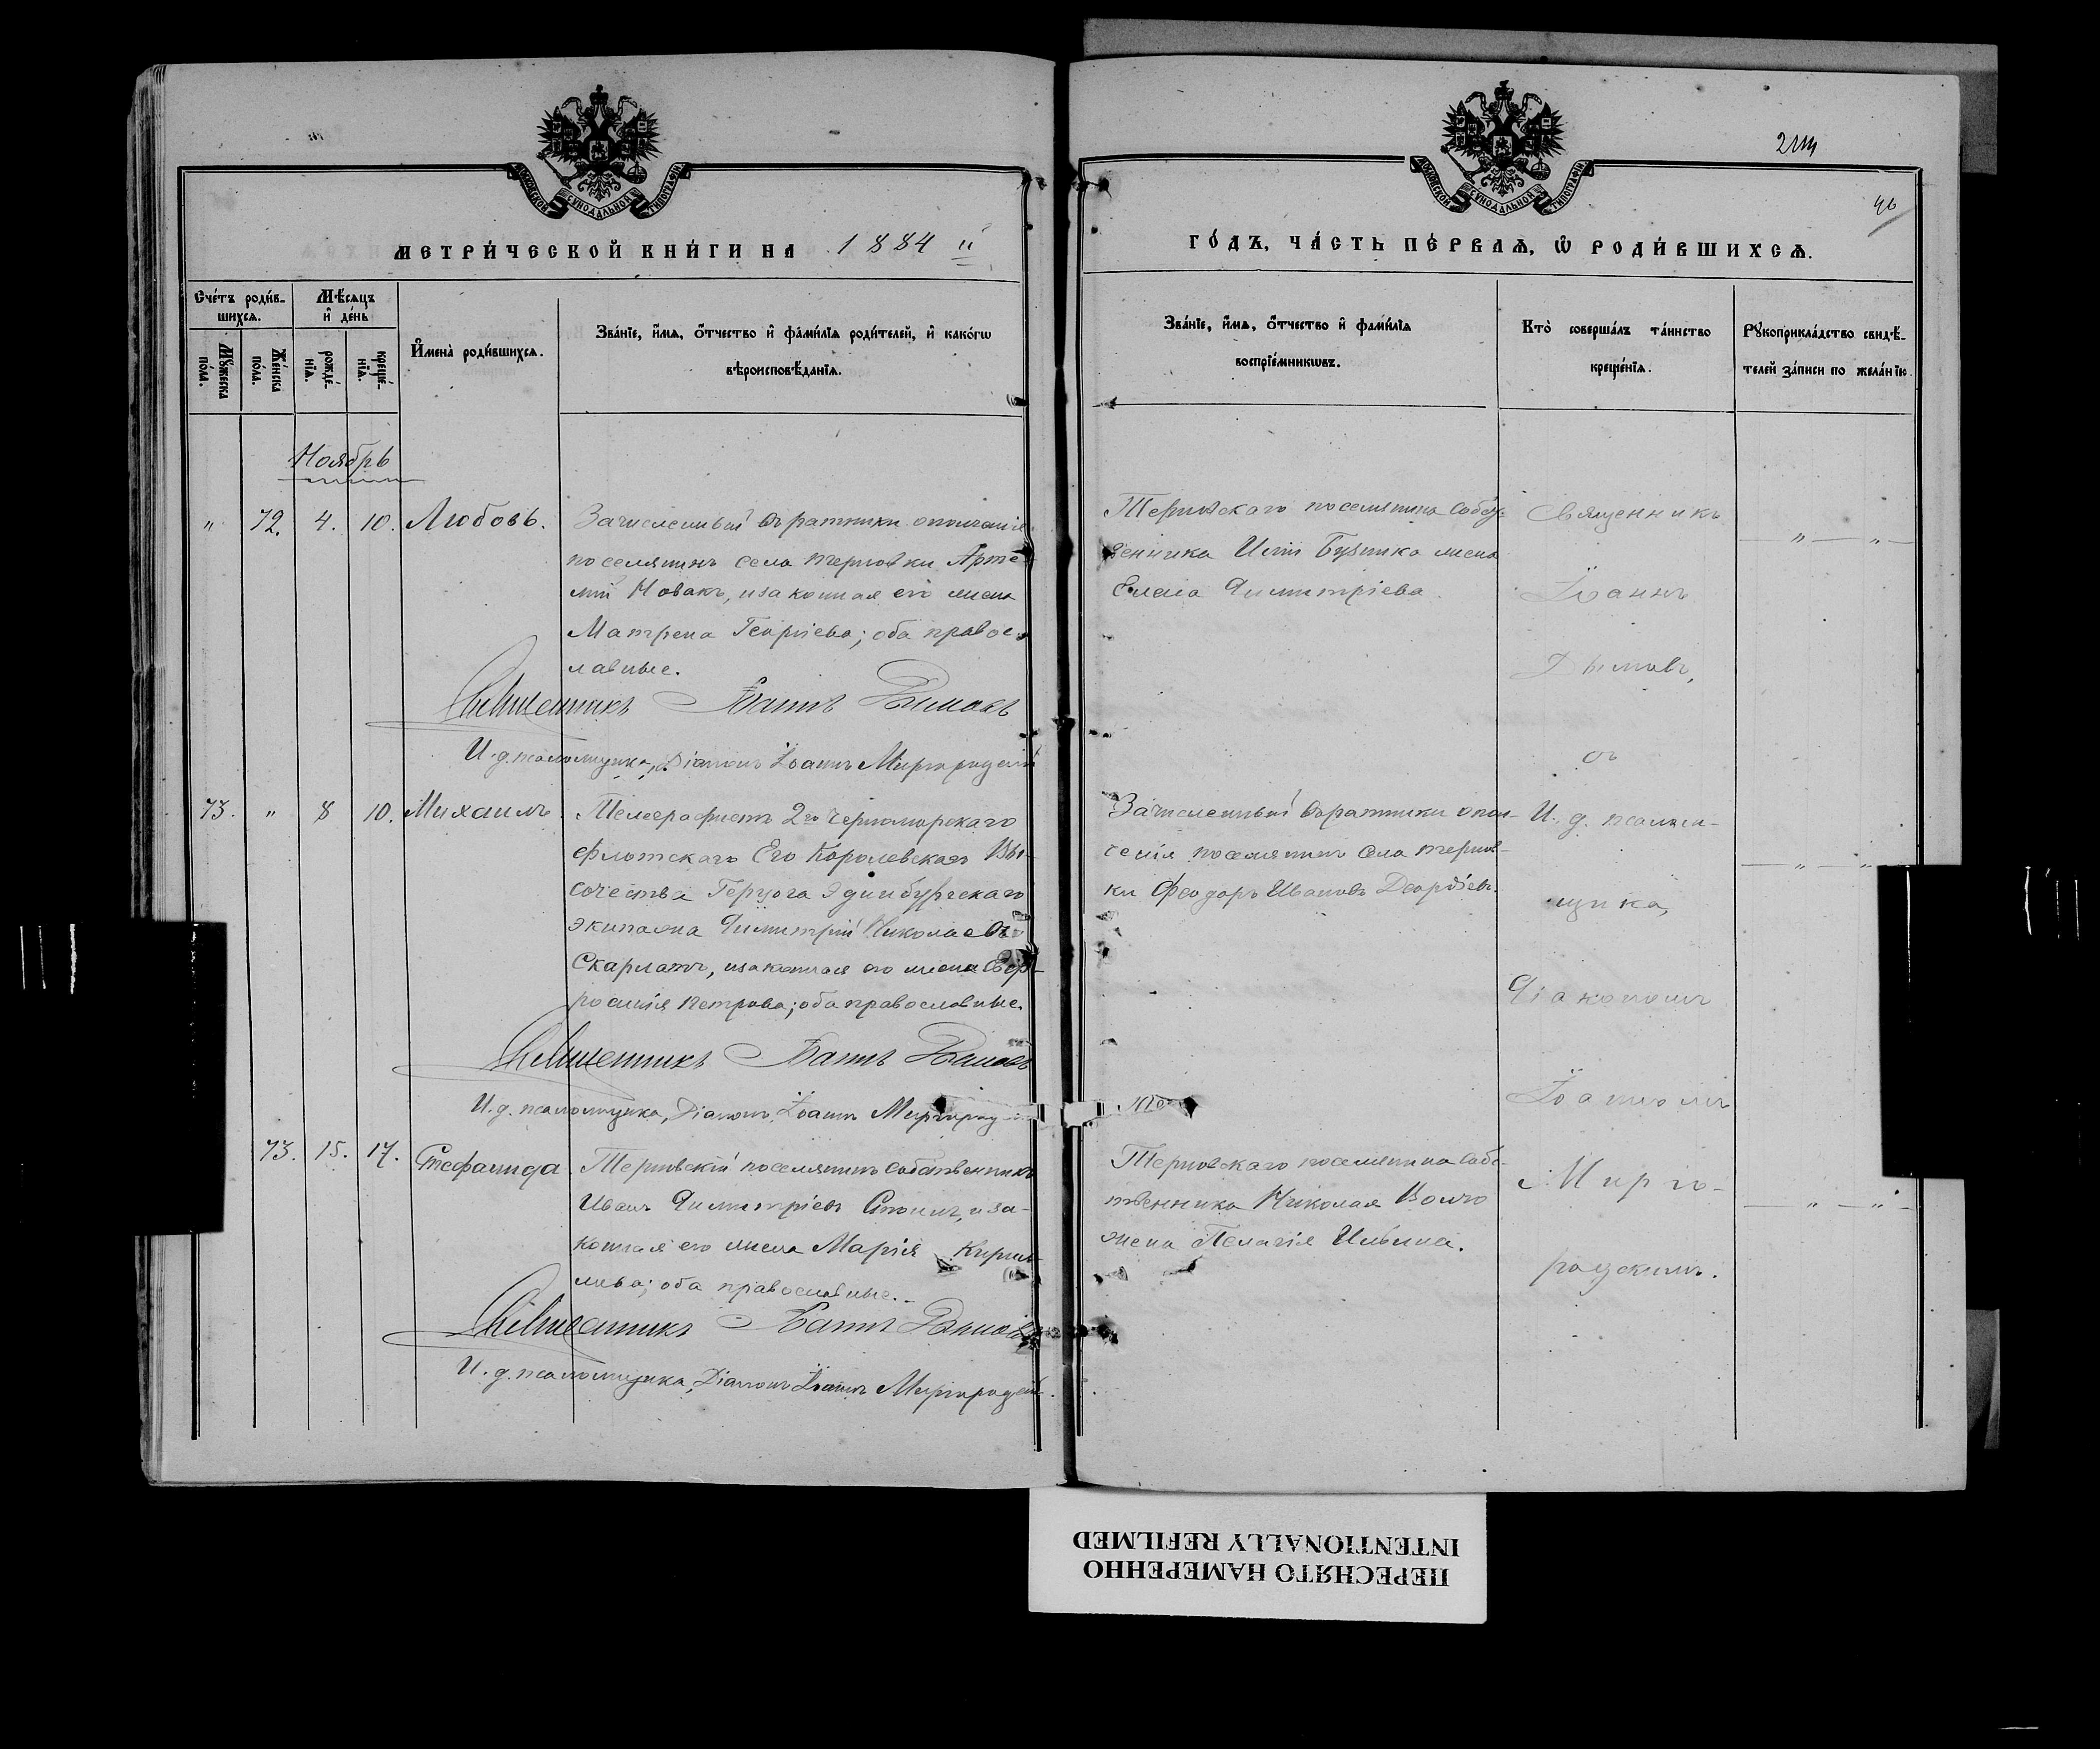 МОСКОВСКОЙ СѴНОДАЛЬНОЙ ТИПОГРАФІИ
МЕТРИ́ЧЕСКОЙ КНИ́ГИ НА 1884 й
Сче́тъ роди́в-
шихсѧ.
Мѣ́сѧцъ
и҆ де́нь
Мꙋ́жеска
по́ла.
Же́нска
по́ла.
рожде́-
нїѧ.
креще́-
нїѧ.
И҆мена̀ роди́вшихсѧ.
Зва́нїе, и҆́мѧ, ѻ҆́тчество и҆ фамилїѧ роди́телей, и҆ како́гѡ
вѣроисповѣ́данїѧ.
Ноябрь
" 72. 4. 10. Любовь.
Зачисленный въ ратники ополченія
поселянинъ села Терновки Арте-
мій Новакъ, и законная его жена
Матрена Георгіева; оба право-
славные.
Священникъ Іоаннъ Дымовъ
И. д. псаломщика, Діаконъ Іоаннъ Миргородскій
73. " 8 10. Михаилъ
Телеграфистъ 2го Черноморскаго
флотскаго Его Королевскаго Вы-
сочества Герцога Эдинбургскаго
экипажа Димитрій Николаевъ
Скарлатъ, и законная его жена Евф-
росинія Петрова; оба православные.
Священникъ Іоаннъ Дымовъ
И. д. псаломщика, Діаконъ Іоаннъ Миргород
73. 15. 17. Стефанида
Терновскій поселянинъ собственникъ
Иванъ Димитріевъ Стоилъ, и за-
конная его жена Марія Кирил-
лова; оба православные.-
Священникъ Іоаннъ Дымовъ
И. д. псаломщика, Діаконъ Іоаннъ Миргородскій.
46
МОСКОВСКОЙ СѴНОДАЛЬНОЙ ТИПОГРАФІИ
ГО́ДЪ, ЧА́СТЬ ПЕ́РВАѦ, Ѡ҆ РОДИ́ВШИХСѦ.
Зва́нїе, и҆́мѧ, ѻ҆́тчество и҆ фами́лїѧ
воспрїе́мникѡвъ.
Кто̀ соверша́лъ та́инство
креще́нїѧ.
Рꙋкоприкла́дство свидѣ́-
телей за́писи по жела́нїю.
Терновскаго поселянина собст-
венника Иліи Бузника жена
Елена Димитріева.
Зачисленный въ ратники опол-
ченія поселянинъ села Тернов-
ки Феодоръ Ивановъ Деордіевъ.
Терновскаго поселянина собс-
твенника Николая Волчо
жена Пелагія Ильина.
Священникъ
Іоаннъ
Дымовъ,
съ
И. д. псалом-
щика,
Діакономъ
Іоанномъ
Мирго-
родскимъ.
ПЕРЕСНЯТО НАМЕРЕННО
INTENTIONALLY REFILMED